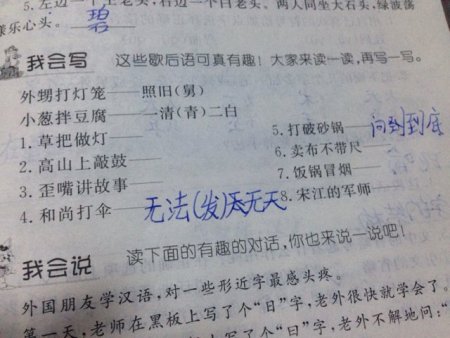 5.左边一个王老头,右边一个白老头、两人同坐大石头,绿波荡
漾乐心头。碧
我会写 这些歇后语可真有趣!大家来读一读,再写一写。
外甥打灯笼——照旧(舅)
小葱拌豆腐——一清(青)二白
1.草把做灯——
2.高山上敲鼓——
3.歪嘴讲故事——
4.和尚打伞——无法(发)无天
5.打破砂锅——问到到底
6.卖布不带尺——
7.饭锅冒烟——
8.宋江的军师——
我会说 读下面的有趣的对话,你也来说一说吧!
外国朋友学汉语,对一些形近字最感头疼。
第一天,老师在黑板上写了个“日”字,老外很快就学会了。
上写了个“日”字,老外不解地问:“